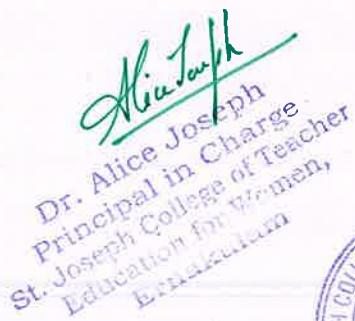 Alice Joseph
Dr. Alice Joseph
Principal in Charge
St. Joseph College of Teacher
Education for Women,
Ernakulam
H COLL